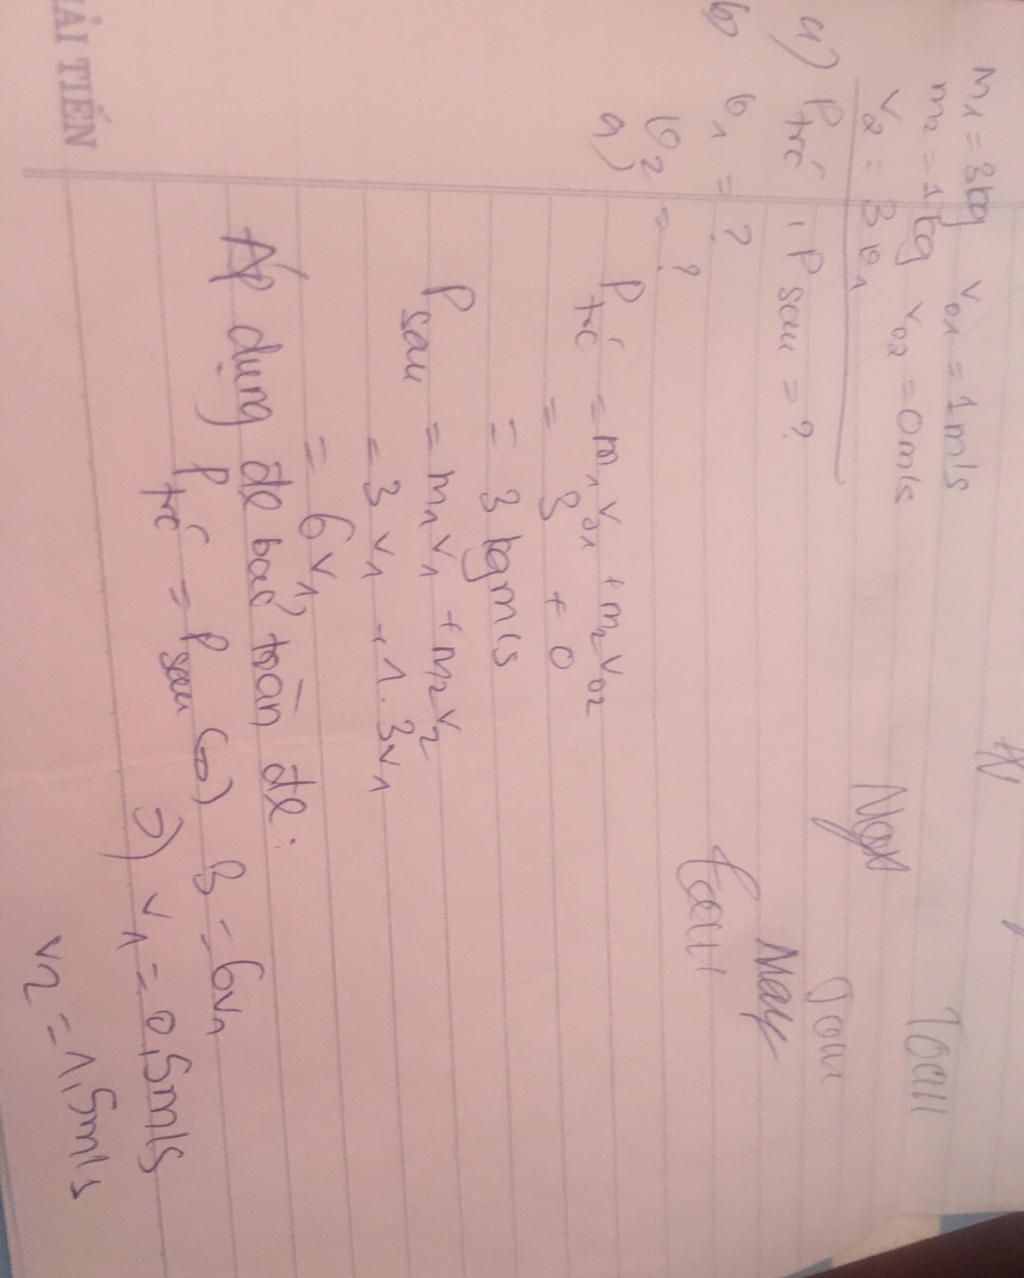 ẢI TIẾN
m1 = 3kg v01 = 1m/s
m2 = 1kg v02 = 0m/s
v2 = 3v1
a) Ptrć, Psau = ?
b) v1 = ?
v2 = ?
a) Ptrć = m1v01 + m2v02
= 3 + 0
= 3 kgm/s
Psau = m1v1 + m2v2
= 3v1 + 1.3v1
= 6v1
Áp dụng đl bảo toàn đl:
Ptrć = Psau (=) 3 = 6v1
=) v1 = 0,5m/s
v2 = 1,5m/s
May